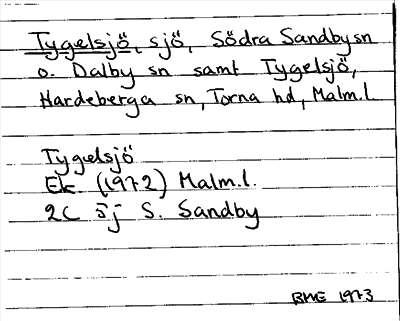 Tygelsjö, sjö, Södra Sandby sn
o. Dalby sn samt Tygelsjö,
Hardeberga sn, Torna hd, Malm.l.
Tygelsjö
Ek. (1972) Malm.l.
2C Sj S. Sandby
1973